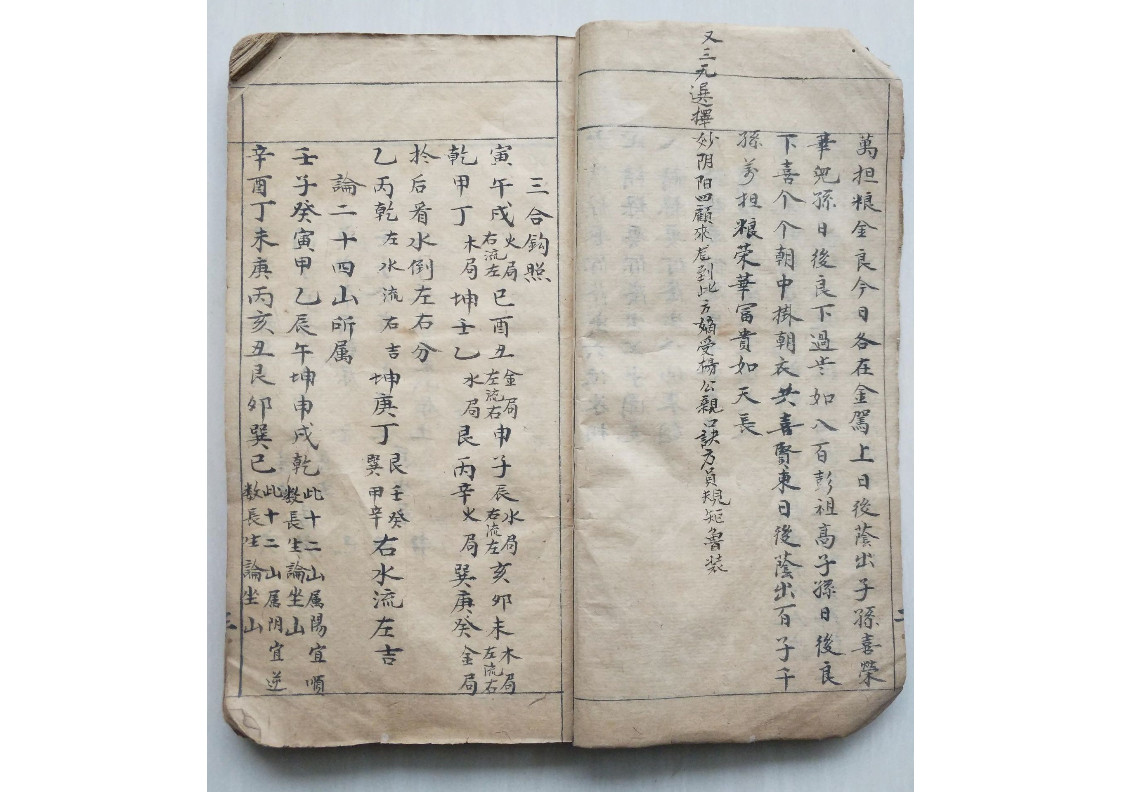 萬担粮金良今日各在金駕上日後蔭出子孫喜榮
華兒孫日後良下過岩如八百彭祖高子孫日後良
下喜个个朝中掛朝衣共喜賢東日後蔭出百子千
孫万担粮荣華冨貴如天長
又三元選擇妙阴阳四顧來音到此方嫡受楊公親口訣方員規矩魯装
二
三合鈎照
寅午戌火局右流左巳酉丑金局左流右申子辰水局右流左亥卯未木局左流右
乾甲丁木局坤壬乙水局艮丙辛火局巽庚癸金局
扵后看水倒左右分
乙丙乾左水流右吉坤庚丁艮壬癸巽甲辛右水流左吉
論二十四山所属
壬子癸寅甲乙辰午坤申戌乾此十二山属陽宜順数長生論坐山
辛酉丁未庚丙亥丑艮卯巽巳此十二山属阴宜逆数長生論坐山
三